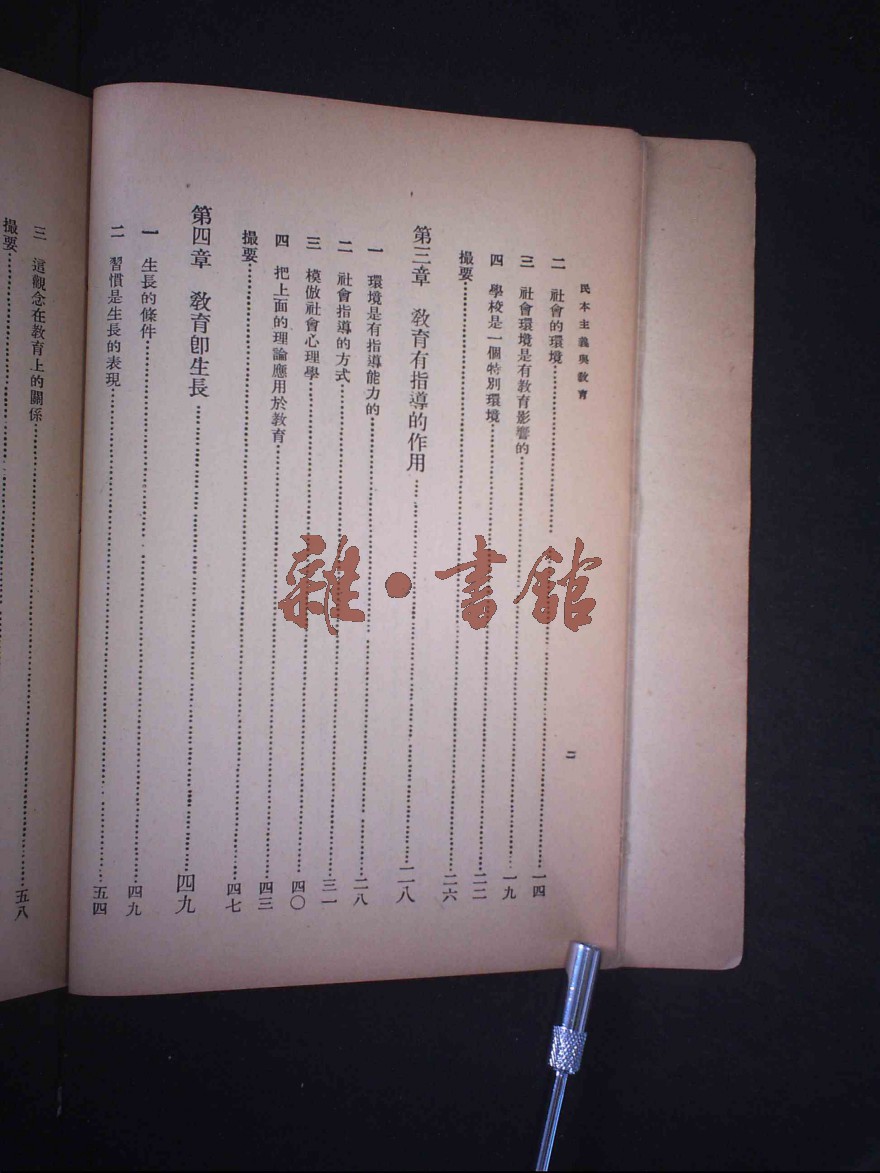 民本主義與教育
二
二　社會的環境……一四
三　社會環境是有教育影響的……一九
四　學校是一個特別環境……二二
撮要……二六
第三章　教育有指導的作用……二八
一　環境是有指導能力的……二八
二　社會指導的方式……三一
三　模倣社會心理學……四〇
四　把上面的理論應用於教育……四三
撮要……四七
第四章　教育卽生長……四九
一　生長的條件……四九
二　習慣是生長的表現……五四
三　這觀念在教育上的關係……五八
撮要……
雜·書館